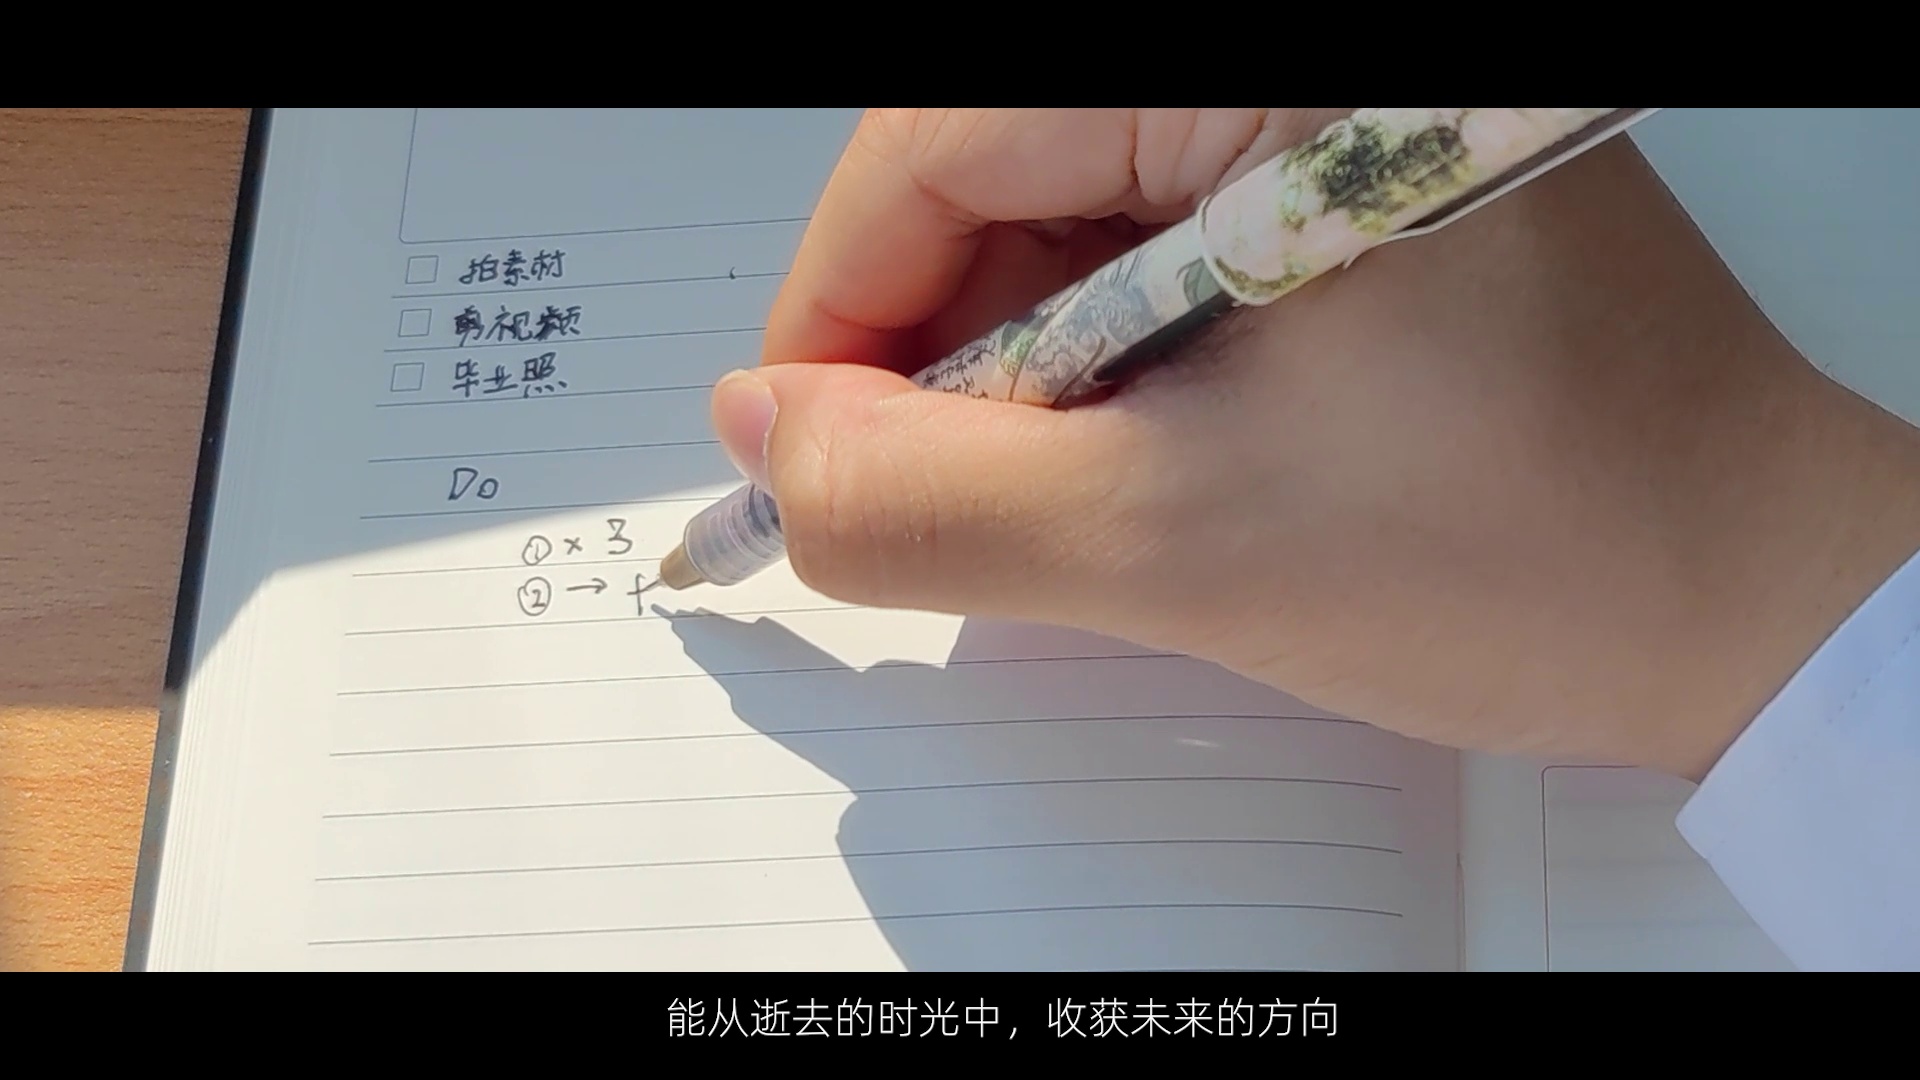 拍素材
剪视频
毕业照
Do
① × 3
② → f
能从逝去的时光中，收获未来的方向